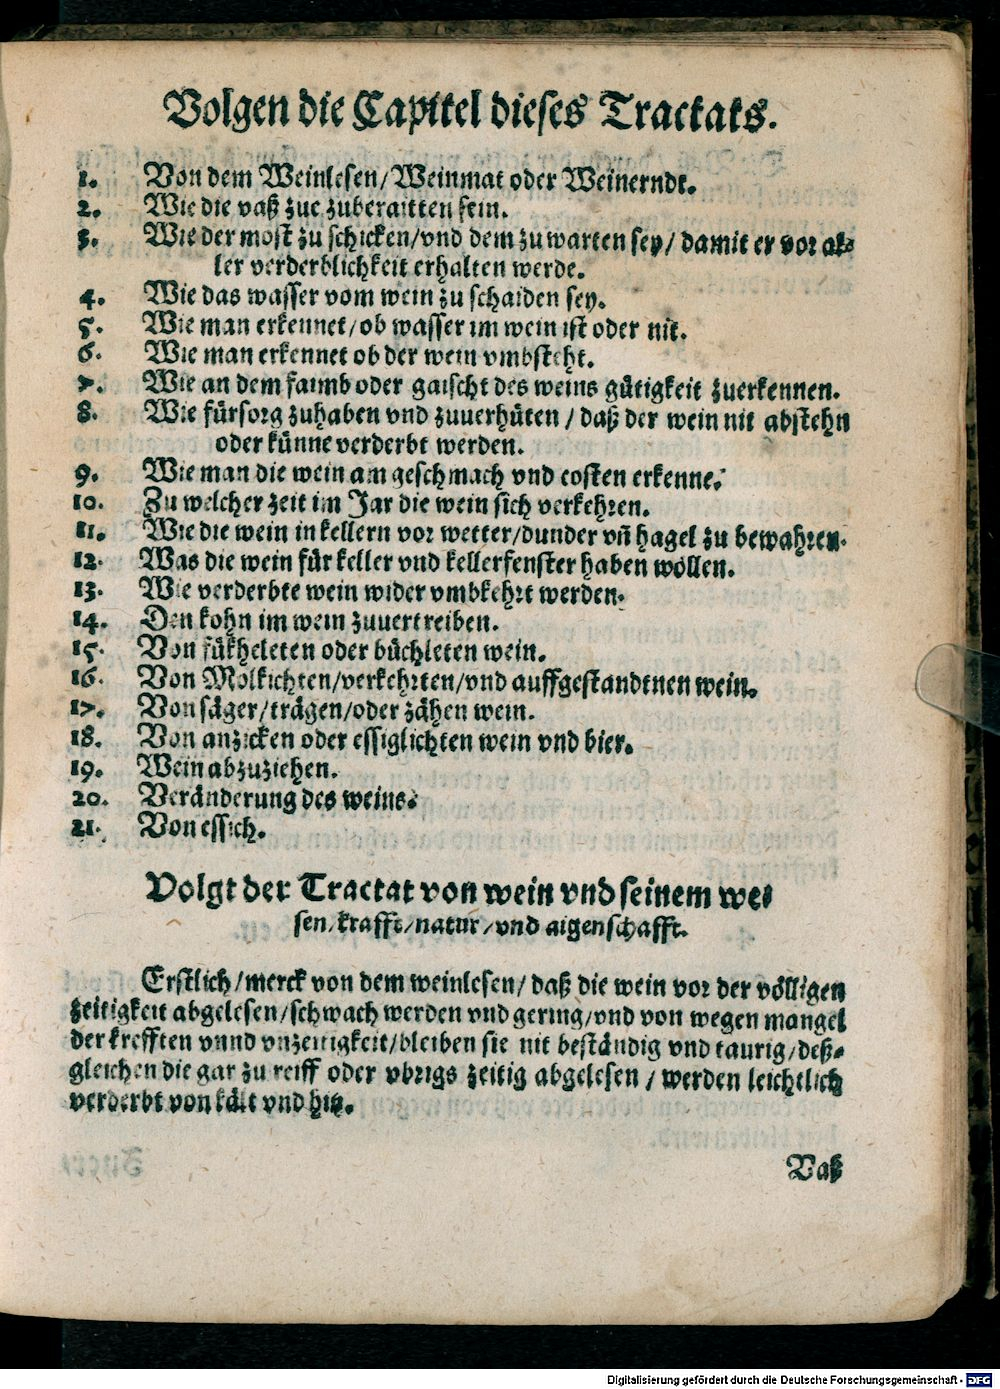 Volgen die Capitel dieses Tractats.
1. Von dem Weinlesen/Weinmat oder Weinerndt.
2. Wie die vaß zue zuberaitten sein.
3. Wie der most zu schicken/vnd dem zuwarten sey/ damit er vor al-
ler verderblichkeit erhalten werde.
4. Wie das wasser vom wein zu schaiden sey.
5. Wie man erkennet/ob wasser im wein ist oder nit.
6. Wie man erkennet ob der wein vmbsteht.
7. Wie an dem faimb oder gaischt des weins gütigkeit zuerkennen.
8. Wie fürsorg zuhaben vnd zuuerhüten / daß der wein nit abstehn
oder künne verderbt werden.
9. Wie man die wein am geschmach vnd costen erkenne.
10. Zu welcher zeit im Jar die wein sich verkehren.
11. Wie die wein in kellern vor wetter/dunder vñ hagel zu bewahren.
12. Was die wein für keller vnd kellerfenster haben wöllen.
13. Wie verderbte wein wider vmbkehrt werden.
14. Den kohn im wein zuuertreiben.
15. Von fükheleten oder büchleten wein.
16. Von Molkichten/verkehrten/vnd auffgestandtnen wein.
17. Von säger/trägen/oder zähen wein.
18. Von anzicken oder essiglichten wein vnd bier.
19. Wein abzuziehen.
20. Veränderung des weins.
21. Von essich.
Volgt der Tractat von wein vnd seinem we-
sen/krafft/natur/vnd aigenschafft.
Erstlich/merck von dem weinlesen/ daß die wein vor der völligen
zeitigkeit abgelesen/schwach werden vnd gering/vnd von wegen mangel
der krefften vnnd vnzeitigkeit/bleiben sie nit beständig vnd taurig/deß-
gleichen die gar zu reiff oder vbrigs zeitig abgelesen / werden leichtlich
verderbt von kält vnd hitz.
Vaß
Digitalisierung gefördert durch die Deutsche Forschungsgemeinschaft - DFG